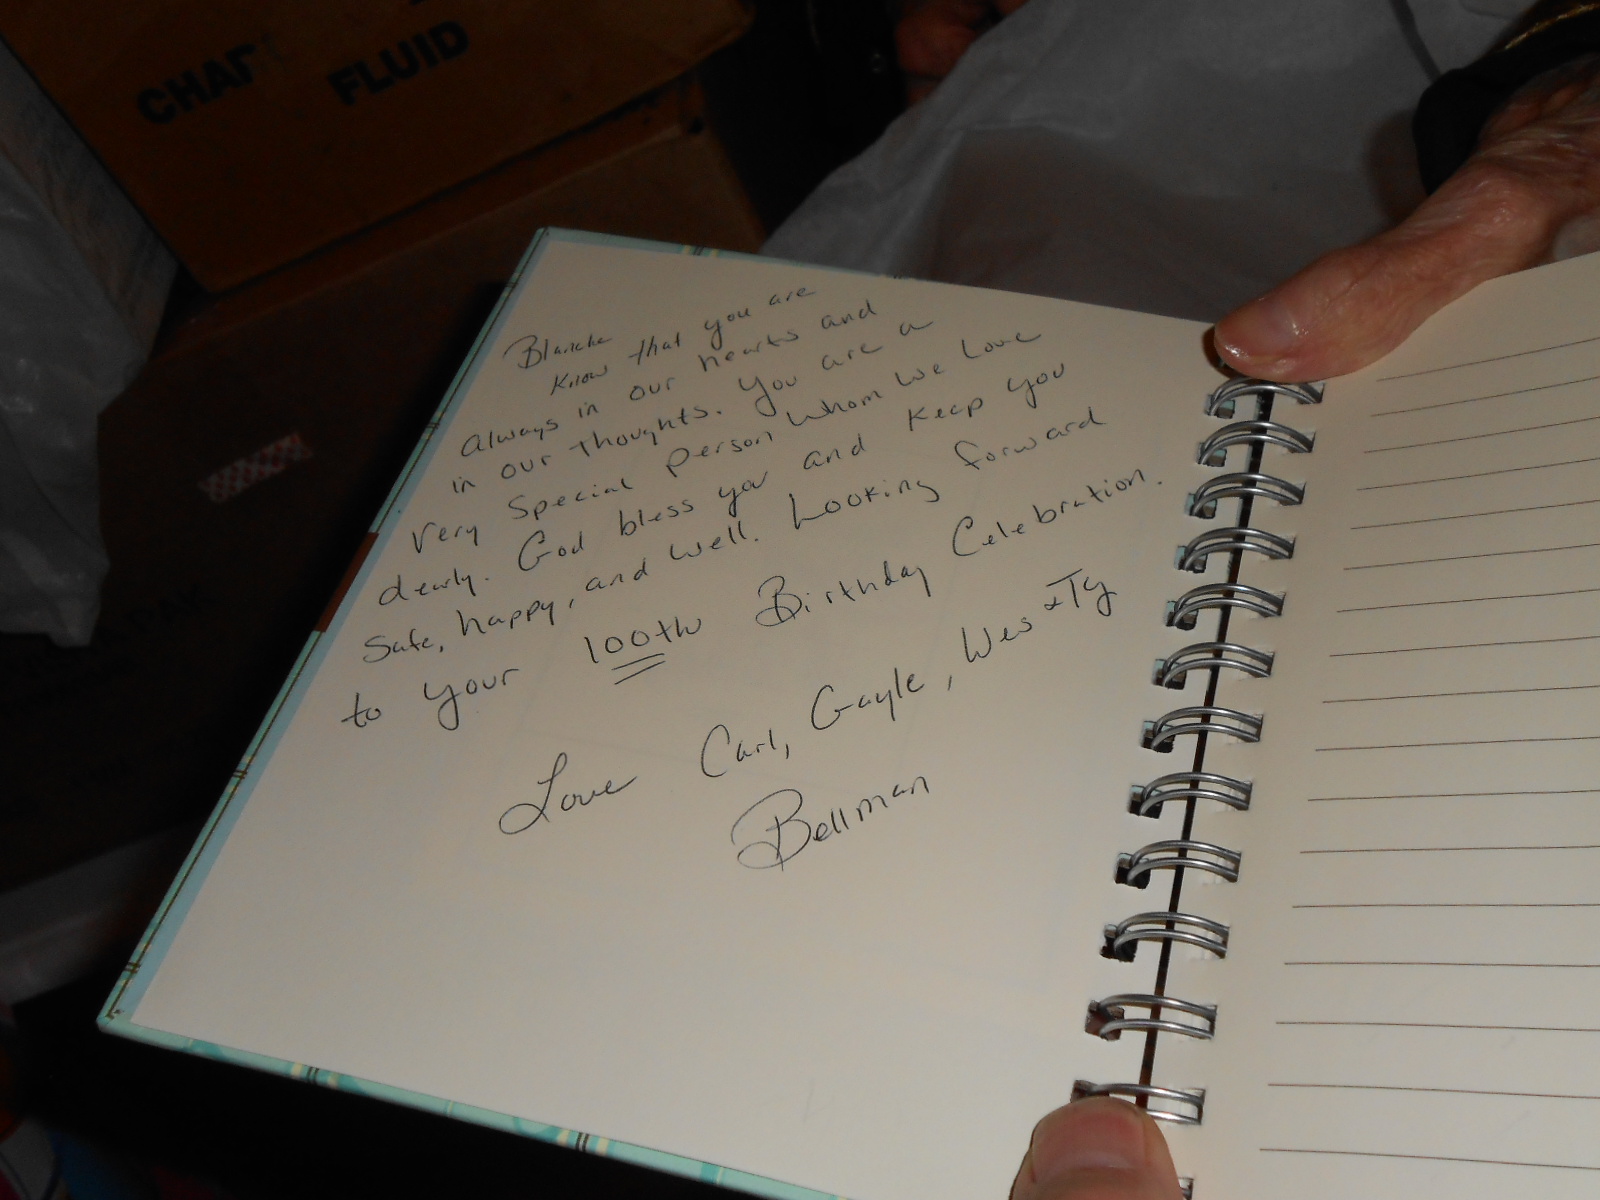 CHAF
FLUID
Blanche
Know that you are
always in our hearts and
in our thoughts. You are a
very special person whom we love
dearly. God bless you and keep you
safe, happy, and well. Looking forward
to your 100th Birthday Celebration.
Love Carl, Gayle, Wes & Ty
Bellman